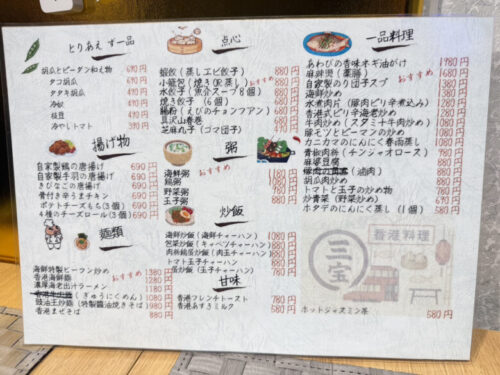 とりあえず一品
胡瓜とピータン和え物 690円
タコ胡瓜 690円
タタキ胡瓜 490円
冷奴 490円
枝豆 490円
冷やしトマト 490円
揚げ物
自家製鶏の唐揚げ 690円
自家製手羽の唐揚げ 690円
きびなごの唐揚げ 690円
骨付き辛うまチキン 690円
ポテトチーズもち(3個) 690円
4種のチーズロール(3個) 690円
麺類
おすすめ
海鮮特製ビーフン炒め 1380円
香港海鮮麺 1280円
濃厚海老出汁ラーメン 1280円
(ぎゅうにくめん) 1080円
豉油王炒麺(特製醤油焼きそば) 980円
香港まぜそば 880円
点心
蝦餃(蒸しエビ餃子) 880円
小籠包(焼き(煎蒸し) おすすめ 880円
水餃子(魚介スープ8個) 880円
焼き餃子(6個) 780円
腸粉(えびのチョンファン) 880円
貝沢山春巻 580円
芝麻丸子(ゴマ団子) 480円
粥
おすすめ
海鮮粥 980円
鶏粥 880円
野菜粥 780円
玉子粥 780円
炒飯
海鮮炒飯(海鮮チャーハン) 980円
包菜炒飯(キャベツチャーハン) 880円
肉絲鍋蛋炒飯(肉玉チャーハン) 880円
トマト玉子チャーハン 880円
蛋炒飯(玉子チャーハン) 780円
甘味
香港フレンチトースト 780円
香港あずきミルク 580円
一品料理
あわびの香味ネギ油がけ 1980円
麻辣煲(薬膳) おすすめ 1380円
自家製のり団子スプ 1380円
海鮮炒め 1280円
水煮肉片(豚肉ピリ辛煮込み) 1280円
香港式ピリ辛海老炒め 1280円
牛肉炒め(スタミナ牛肉炒め) 1280円
豚モツとピーマンの炒め 980円
カニカマのにんにく春雨蒸し 980円
青椒肉絲(チンジャオロース) 980円
麻婆豆腐 980円
(滷肉) 980円
胡瓜肉炒め 980円
トマトと玉子の炒め物 880円
炒青菜(野菜炒め) 880円
ホタテのにんにく蒸し(1個) 580円
三宝
香港料理
ホットジャスミン茶 580円